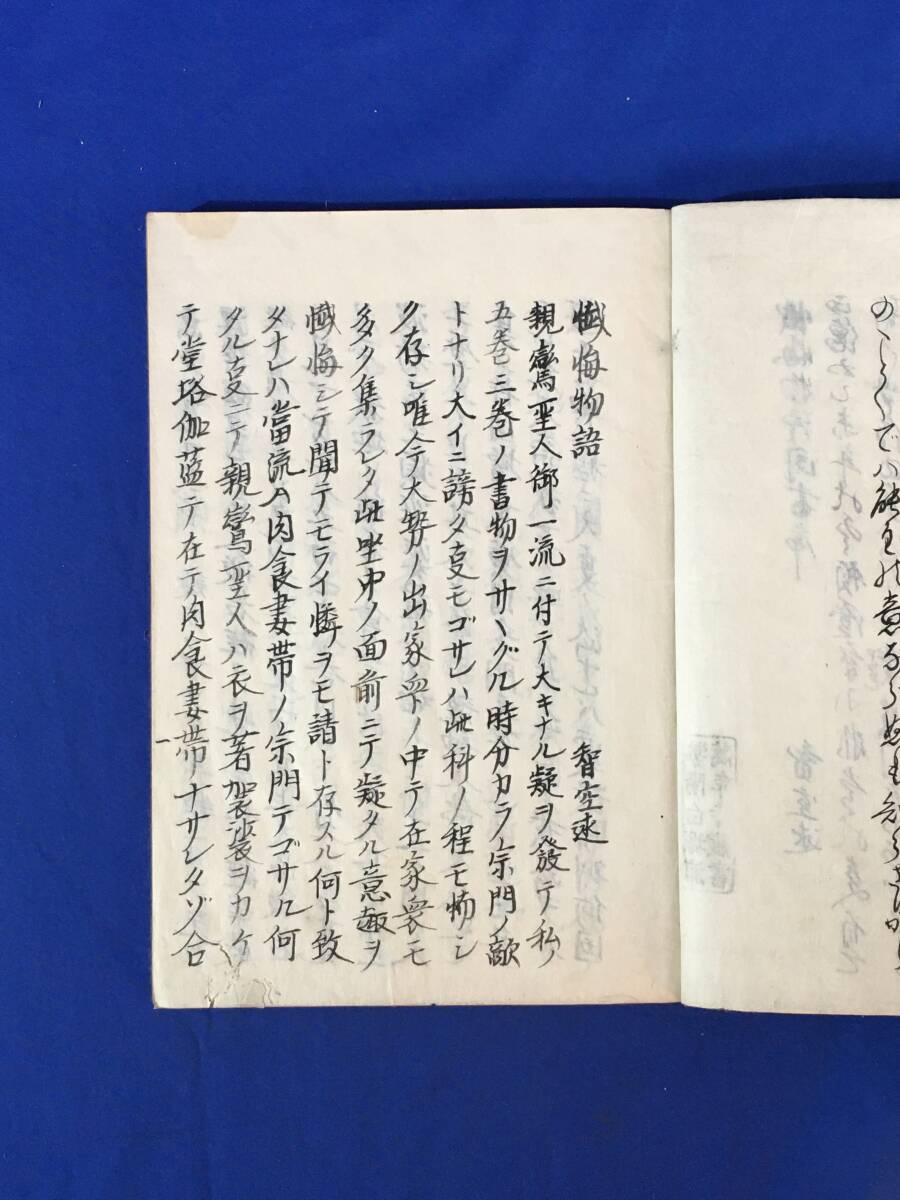 の〳〵でハ能
懺悔物語　智空述
親鸞聖人御一流ニ付テ大キナル疑ヲ發テ私ノ
五巻三巻ノ書物ヲサヽグル時分カラノ宗門ノ敵
トナリ大イニ謗タ㕝モゴサレハ此科ノ程モ怖シ
ク存シ唯今大勢ノ出家衆ノ中テ在家衆モ
多ク集ラレタ此坐中ノ面前ニテ疑タル意趣ヲ
懺悔シテ聞テモライ憐ヲモ請ト存スル何ト致
タナレハ當流ハ肉食妻帯ノ宗門テゴサル何
タル㕝ニテ親鸞聖人ハ衣ヲ著袈裟ヲカケ
テ堂塔伽藍テ在テ肉食妻帯ナサレタゾ合